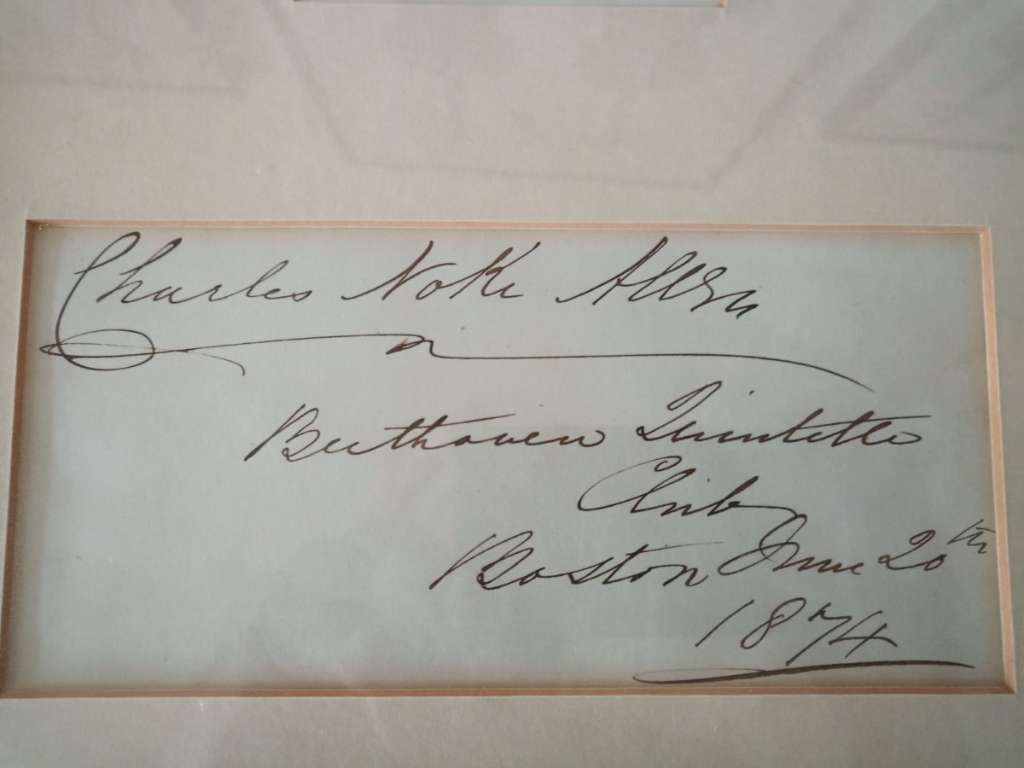 Charles N. Allen
Beethoven Quintette
Club
Boston June 20th
1874